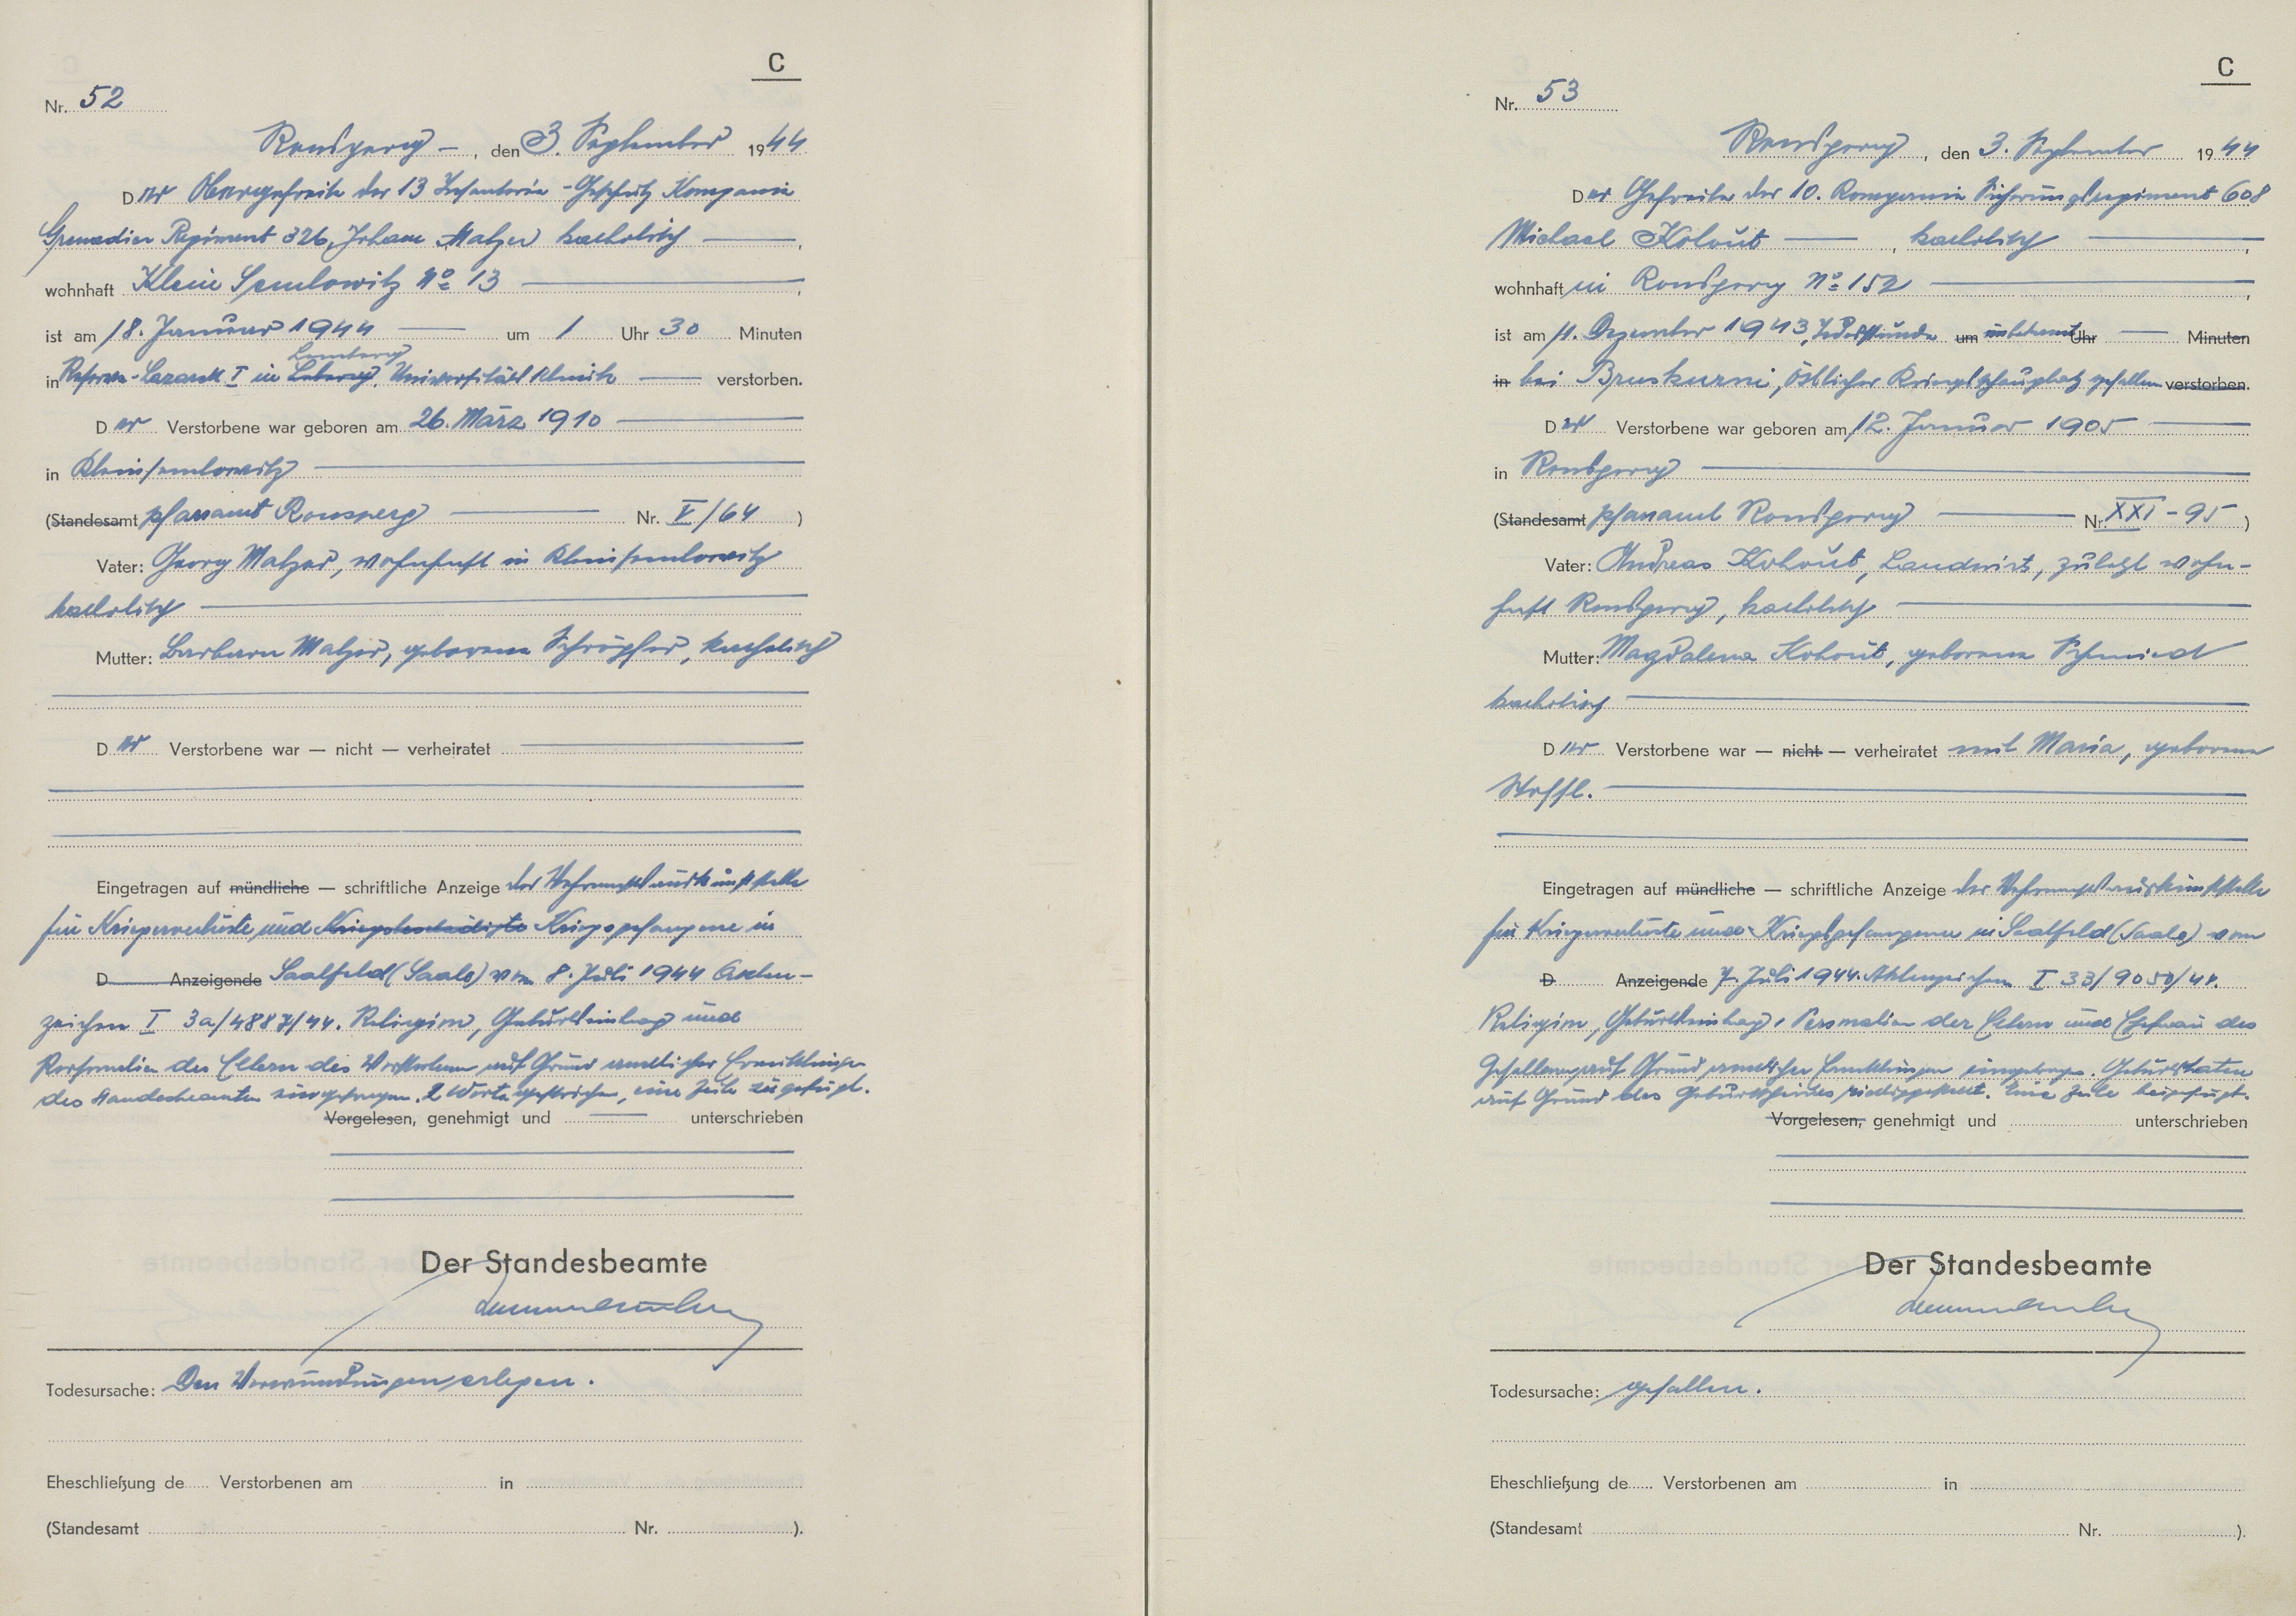 C
Nr. 52
Ronsperg, den 3. September 1944
Der Obergefreite der 13 Infanterie-Geschütz Kompanie
Grenadier Regiment 326, Johann Matzer katholisch
wohnhaft Klein Semlowitz No 13
ist am 18. Januar 1944 um 1 Uhr 30 Minuten
Lemberg
in Reserve-Lazarett I in Leberg, Universität Klinik verstorben.
Der Verstorbene war geboren am 26. März 1910
in Kleinsemlowitz
(Standesamt Pfarramt Ronsperg Nr. V/64)
Vater: Georg Matzer, wohnhaft in Kleinsemlowitz
katholisch
Mutter: Barbara Matzer, geborene Schröpfer, katholisch
Der Verstorbene war — nicht — verheiratet
Eingetragen auf mündliche — schriftliche Anzeige der Wehrmachtauskunftstelle
für Kriegerverluste und Kriegsbeschädigte Kriegsgefangene in
D Anzeigende Saalfeld (Saale) vom 8. Juli 1944 Akten-
zeichen I 3a/4887/44. Religion, Geburtseintrag und
Personalien der Eltern des Verstorbenen auf Grund amtlicher Ermittlungen
des Standesbeamten eingetragen. 2 Worte gestrichen, eine Zeile zugefügt.
Vorgelesen, genehmigt und unterschrieben
Der Standesbeamte
Todesursache: Den Verwundungen erlegen.
Eheschließung de Verstorbenen am in
(Standesamt Nr. ).
C
Nr. 53
Ronsperg, den 3. September 1944
Der Gefreite der 10. Kompanie Sicherungsregiment 608
Michael Kohout, katholisch
wohnhaft in Ronsperg No 152
ist am 11. Dezember 1943, Todesstunde um unbekannt Uhr Minuten
in bei Bruskurni, östlicher Kriegsschauplatz gefallen verstorben.
Der Verstorbene war geboren am 12. Januar 1905
in Ronsperg
(Standesamt Pfarramt Ronsperg Nr. XXI-95)
Vater: Andreas Kohout, Landwirt, zuletzt wohn-
haft Ronsperg, katholisch
Mutter: Magdalena Kohout, geborene Schmied
katholisch
Der Verstorbene war — nicht — verheiratet mit Maria, geborene
Stoffl.
Eingetragen auf mündliche — schriftliche Anzeige der Wehrmachtauskunftstelle
für Kriegerverluste und Kriegsgefangene in Saalfeld (Saale) vom
D Anzeigende 7. Juli 1944. Aktenzeichen I 33/9050/44.
Religion, Geburtseintrag, Personalien der Eltern und Ehefrau des
Gefallenen auf Grund amtlicher Ermittlungen eingetragen. Geburtsdaten
auf Grund des Geburtsscheines richtiggestellt. Eine Zeile beigefügt.
Vorgelesen, genehmigt und unterschrieben
Der Standesbeamte
Todesursache: gefallen.
Eheschließung de Verstorbenen am in
(Standesamt Nr. ).